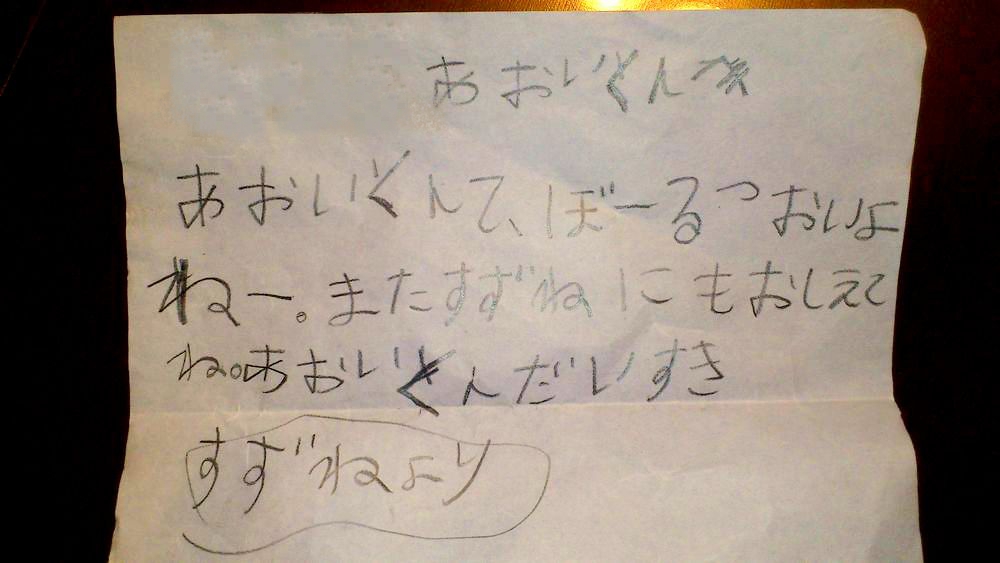 あおいくんへ
あおいくんて、ぼーるつおいよ
ねー。またすずねにもおしえて
ね。あおいくんだいすき
すずねより